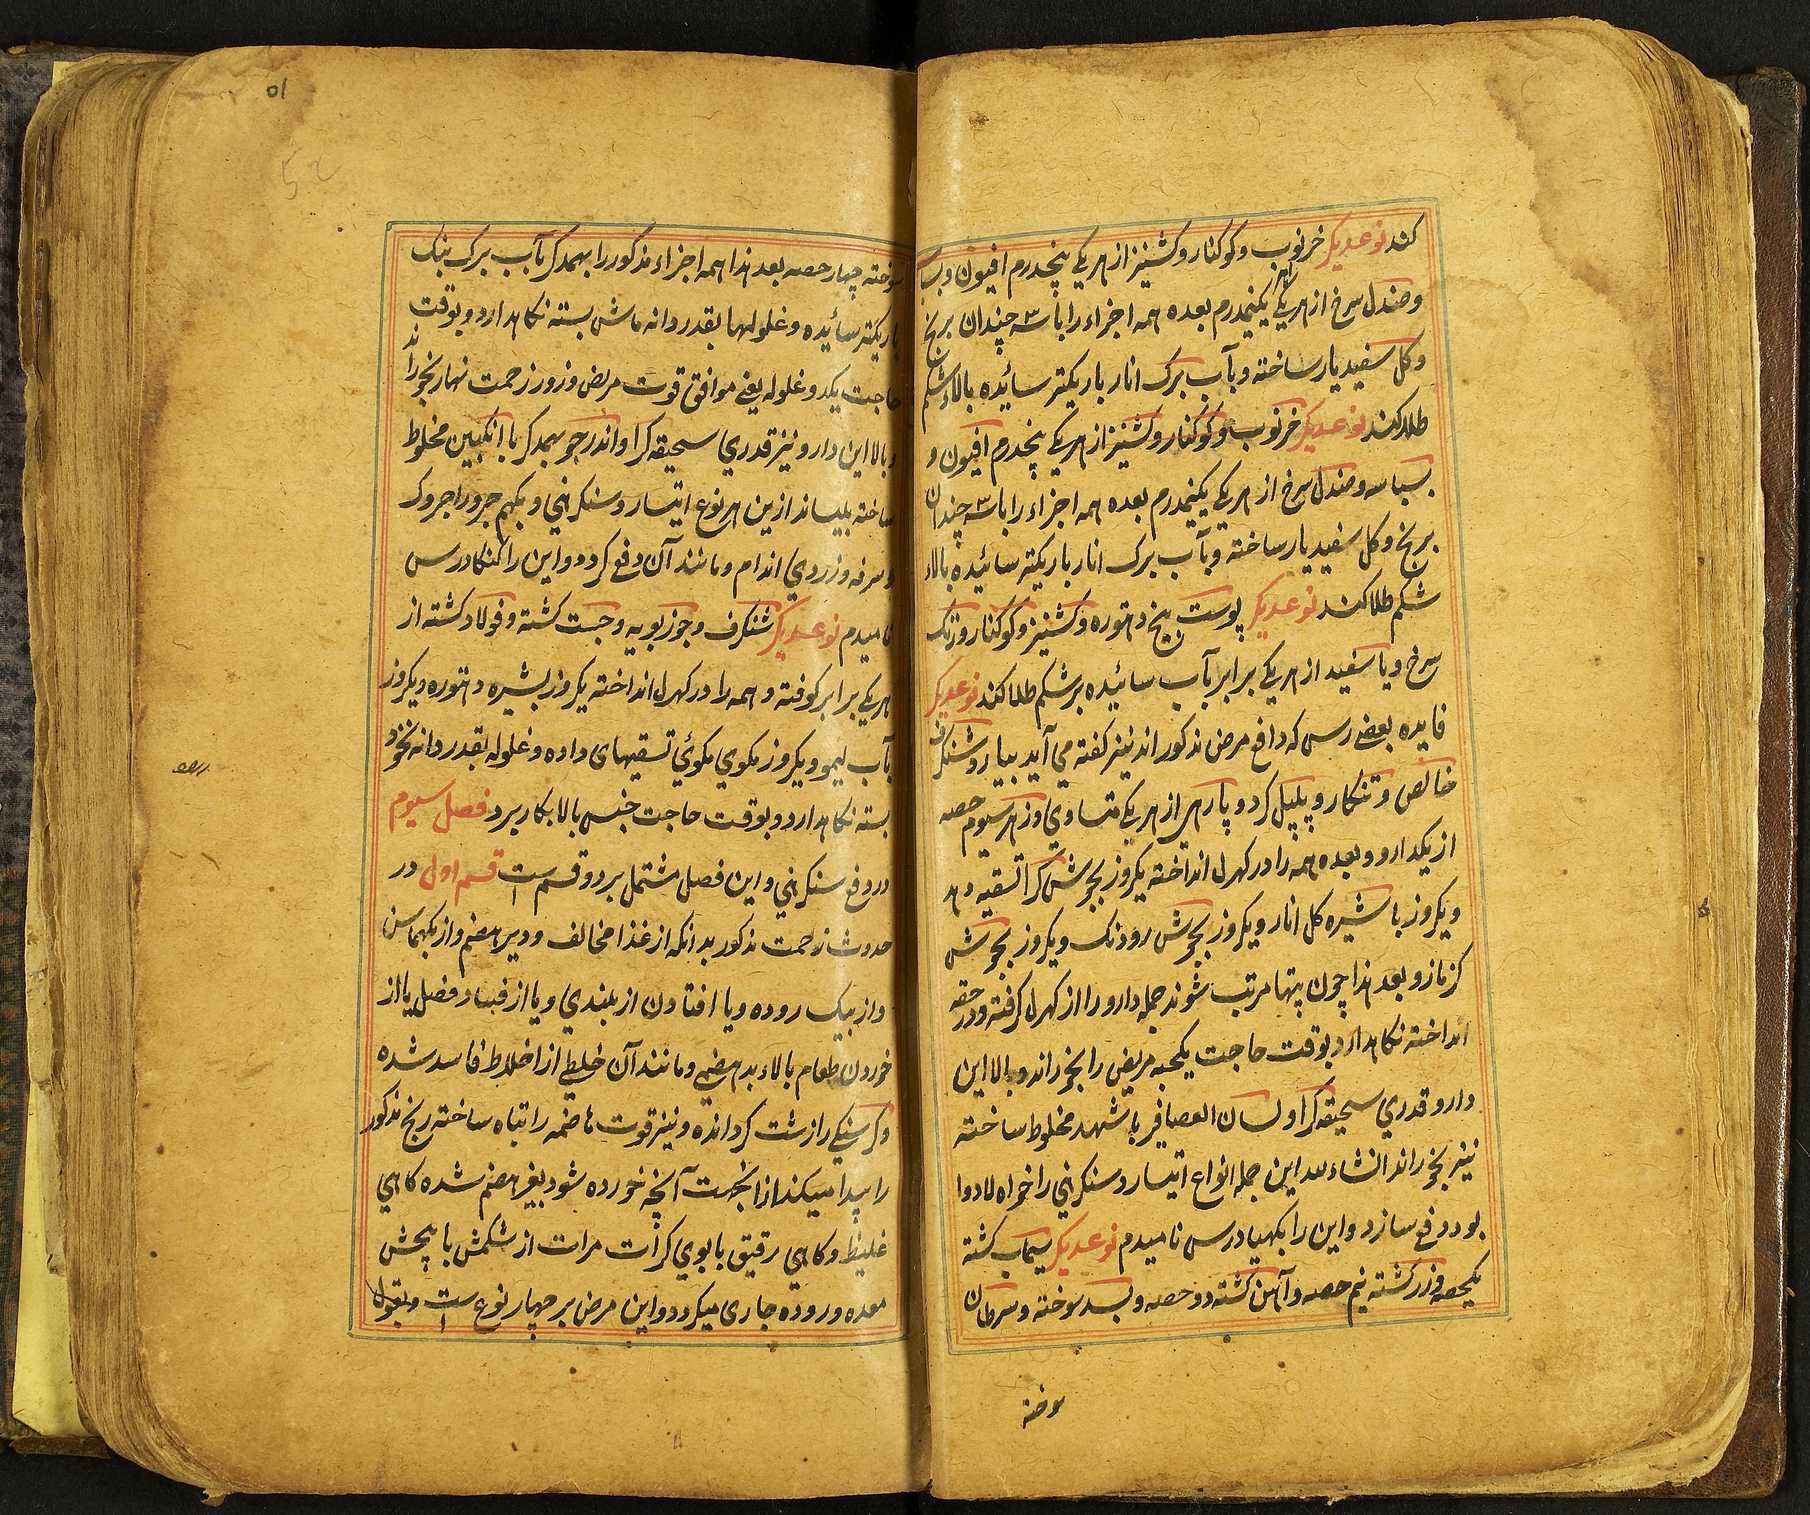 کند نوعدیگر خرنوب و کوکنار و کشنیز از هر یکے پنجدرم افیون و بسبا
و صندل سرخ از هر یکے یکنیمدرم بعده همه اجزاء را با سه چندان برنج
و کل سفید یار ساخته و بآب برک انار باریکتر سائیده بالاء شکم
طلا کنند نوعدیگر خرنوب و کوکنار و کشنیز از هر یکے پنجدرم افیون و
بسباسه و صندل سرخ از هر یکے یکنیمدرم بعده همه اجزاء را با سه چندان
برنج و کل سفید یار ساخته و بآب برک انار باریکتر سائیده بالاء
شکم طلا کنند نوعدیگر پوست بیخ دهتوره و کشنیز و کوکنار و رتک
سرخ و یا سفید از هر یکے برابر بآب سائیده بر شکم طلا کنند نوعدیگر
فایده بعضے رس که دافع مرض مذکور اند نیز کفته می آید بیارد شنگرف
خالص و تنکار و پلپل کرد و پارهی از هر یکے متساوی و زهر سیوم حصه
از یکدارو و بعده همه را در کهرل انداخته یکروز بجوش کرا تسقیه دهد
و یکروز با شیره کل انار و یکروز بجوش رودنک و یکروز بجوش
کزمازو بعد هذا چون پتها مرتب شوند جمله دارو را از کهرل کرفته و در حقه
انداخته نکاهدارد بوقت حاجت یکحبه مریض را بخوراند و بالا این
دارو قدری سحیقه کرا و لسان العصافیر با شهد مخلوط ساخته
نیز بخوراند انشاء لله این جمله انواع اتیسار و سنکرهنی را خواه لادوا
بود دفع سازد و این را بکهیادرس نامیدم نوعدیگر سیماب کشته
یکحصه و زر کشته نیم حصه و آهن کشته دو حصه و بسد سوخته و سرطان
سوخته
۵۱
52
سوخته چهار حصه بعد هذا همه اجزاء مذکور را بهمدکر بآب برک بنک
باریکتر سائیده و غلولها بقدر دانه ماش بسته نکاهدارد و بوقت
حاجت یکدو غلوله یعنے موافق قوت مریض و زور زحمت نهار بخوراند
و بالا این دارو نیز قدری سحیقه کرا و اندرجو بهمدکر با انکبین مخلوط
ساخته بلیساند ازین هر نوع اتیسار و سنکرهنی و بکهم جرور اجروک
و سرفه و زردی اندام و مانند آن دفع کردد و این را کنکادرس
نامیدم نوعدیگر شنکرف و جوزبویه و جست کشته و فولاد کشته از
هر یکے برابر کوفته و همه را در کهرل انداخته یکروز بشیره دهتوره و یکروز
بآب لیمو و یکروز بکوی مکوئی تسقیهای داده و غلوله بقدر دانه نخود
بسته نکاهدارد و بوقت حاجت جنس بالا بکار برد فصل سیوم
در دفع سنکرهنی و این فصل مشتمل بر دو قسم است قسم اول در
حدوث زحمت مذکور بدانکه از غذا مخالف و دیر هضم و از بکهماسن
و از بیک روده و یا افتادن از بلندی و یا از فساد فصل یا از
خوردن طعام بالاء بدهضمی و مانند آن خلطے از اخلاط فاسد شده
و کرسنکے را زشت کردانده و نیز قوت هاضمه را تباه ساخته رنج مذکور
را پیدا میکند ازانجهت آنچه خورده شود بغیر هضم شده کاهی
غلیظ و کاهی رقیق با بوی کرات مرات از شکمش با پیچش
معده و روده جاری میکردد و این مرض بر چهار نوع است و بقول